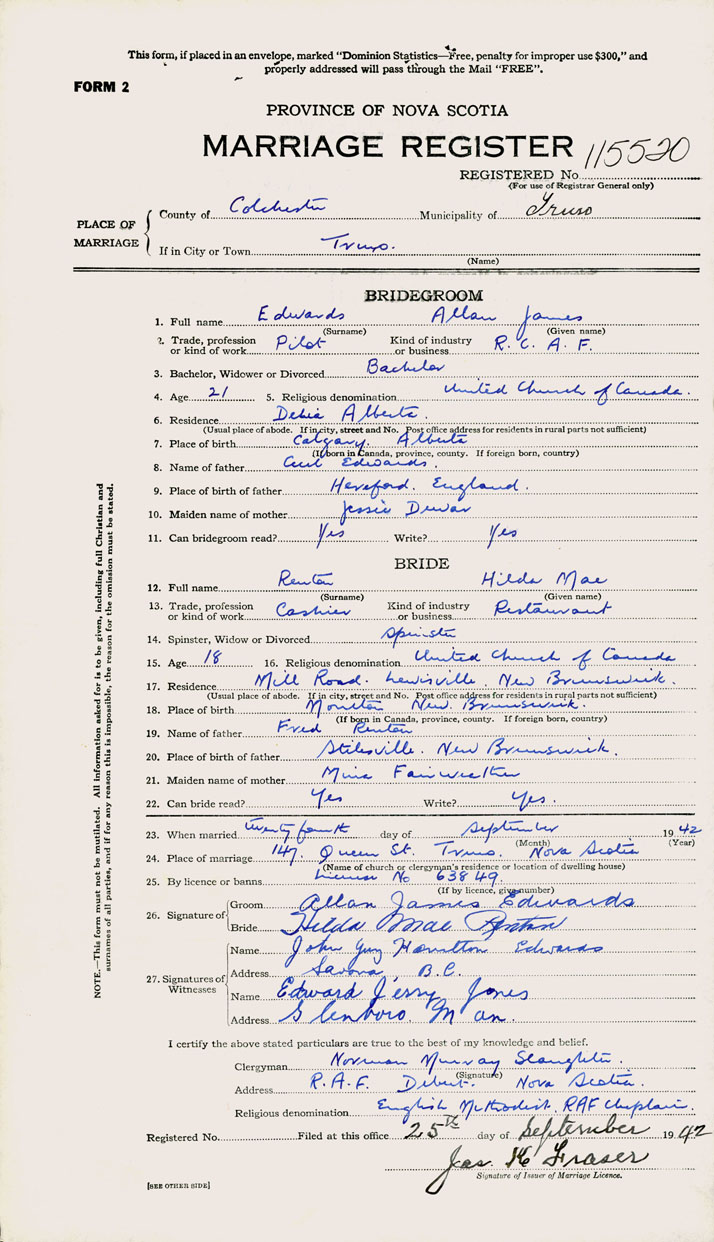 This form, if placed in an envelope, marked "Dominion Statistics—Free, penalty for improper use $300," and
properly addressed will pass through the Mail "FREE".
FORM 2
PROVINCE OF NOVA SCOTIA
MARRIAGE REGISTER 115520
REGISTERED No.
(For use of Registrar General only)
PLACE OF MARRIAGE
County of Colchester Municipality of Truro
If in City or Town Truro.
(Name)
BRIDEGROOM
1. Full name Edwards Allan James
(Surname) (Given name)
2. Trade, profession or kind of work Pilot Kind of industry or business R. C. A. F.
3. Bachelor, Widower or Divorced Bachelor
4. Age 21 5. Religious denomination United Church of Canada.
6. Residence Alberta.
(Usual place of abode. If in city, street and No. Post office address for residents in rural parts not sufficient)
7. Place of birth Calgary. Alberta
(If born in Canada, province, county. If foreign born, country)
8. Name of father Cecil Edwards.
9. Place of birth of father Hereford. England.
10. Maiden name of mother Jessie Dewar
11. Can bridegroom read? Yes Write? Yes
BRIDE
12. Full name Renton Hilda Mae
(Surname) (Given name)
13. Trade, profession or kind of work Cashier Kind of industry or business Restaurant
14. Spinster, Widow or Divorced Spinster
15. Age 18 16. Religious denomination United Church of Canada
17. Residence Mill Road. Lewisville. New Brunswick.
(Usual place of abode. If in city, street and No. Post office address for residents in rural parts not sufficient)
18. Place of birth Moncton New. Brunswick.
(If born in Canada, province, county. If foreign born, country)
19. Name of father Fred Renton
20. Place of birth of father Stilesville. New Brunswick.
21. Maiden name of mother Mina Fairweather
22. Can bride read? Yes Write? Yes.
23. When married twenty fourth day of September 1942
(Month) (Year)
24. Place of marriage 147. Queen St. Truro. Nova Scotia
(Name of church or clergyman's residence or location of dwelling house)
25. By licence or banns License No 63849.
(If by licence, give number)
26. Signature of
Groom Allan James Edwards
Bride Hilda Mae Renton
27. Signatures of Witnesses
Name John Guy Hamilton Edwards
Address Savona, B.C.
Name Edward Jerry Jones
Address Glenboro, Man.
I certify the above stated particulars are true to the best of my knowledge and belief.
Clergyman Norman Murray Slaughter.
(Signature)
Address R.A.F. Debert. Nova Scotia.
Religious denomination English Methodist. RAF Chaplain.
Registered No. Filed at this office 25th day of September 1942
Jas. K Fraser
Signature of Issuer of Marriage Licence.
[SEE OTHER SIDE]
NOTE.—This form must not be mutilated. All information asked for is to be given, including full Christian and
surnames of all parties, and if for any reason this is impossible, the reason for the omission must be stated.